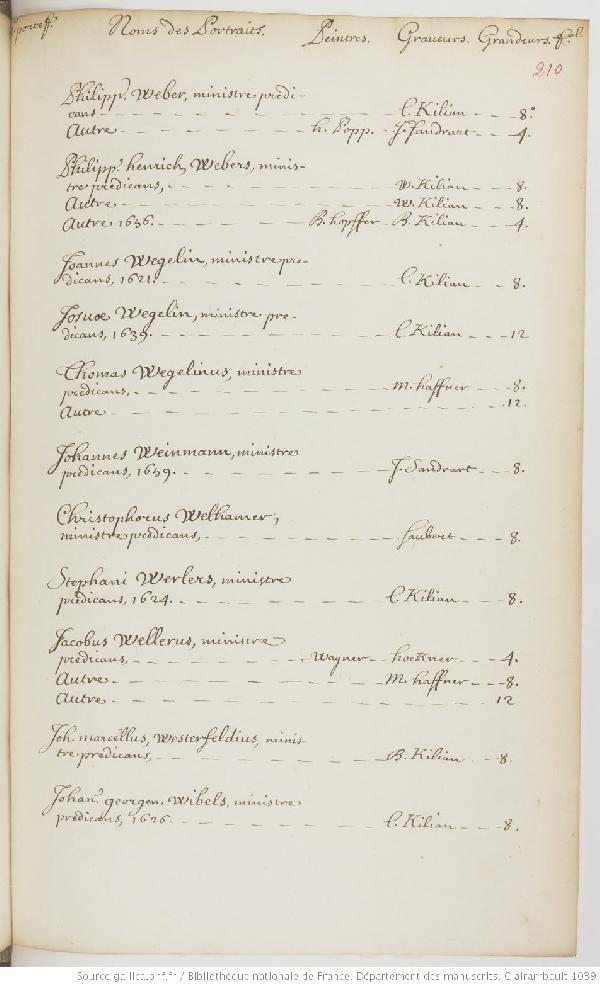 porteff. Noms des Portraits. Peintres. Graveurs. Grandeurs. fol.
210
Philipp. Weber, ministre prédi-
cans - - - L. Kilian - - - 8°
Autre - - - h. Popp. - J. Sandrart - - 4.
Philipp. henrich Webers, minis-
tre prédicans, - - - W. Kilian - - 8.
Autre - - - W. Kilian - - 8.
Autre 1656. - - - B. hopffer - B. Kilian - - 4.
Joannes Wegelin, ministre pré-
dicans, 1621. - - - L. Kilian - - 8.
Josuæ Wegelin, ministre pre-
dicans, 1639. - - - L. Kilian - - - 12
Thomas Wegelinus, ministre
prédicans, - - - M. haffner - - 8.
Autre - - - 12.
Johannes Weinmann, ministre
prédicans, 1659. - - - J. Sandrart - - 8.
Christophorus Welhamer,
ministre prédicans, - - - Faubert - - - 8.
Stephani Werlers, ministre
prédicans, 1624. - - - L. Kilian - - - 8.
Jacobus Wellerus, ministre
prédicans, - - - Wagner - hockner - - - 4.
Autre - - - M. haffner - - - 8.
Autre - - - 12
Joh. marcellus, Westerfeldius, minis-
tre prédicans, - - - B. Kilian - - 8.
Johan. georgen. Wibels, ministre
prédicans, 1626 - - - L. Kilian - - - 8.
Source gallica.bnf.fr / Bibliothèque nationale de France. Département des manuscrits. Clairambault 1039